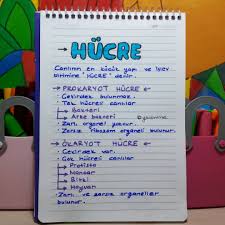 HÜCRE
→ Canlının en küçük yapı ve işlev
birimine "HÜCRE" denir.
→ PROKARYOT HÜCRE ←
• Çekirdek bulunmaz.
• Tek hücreli canlılar
→ Bakteri
→ Arke bakteri
• Zarlı organel yoktur.
• Zarsız ribozom organeli bulunur.
→ ÖKARYOT HÜCRE ←
• Çekirdek var.
• Çok hücreli canlılar
→ Protista
→ Mantar
→ Bitki
→ Hayvan
• Zarlı ve zarsız organeller
bulunur.